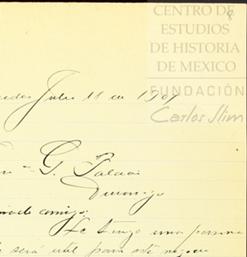 CENTRO DE
ESTUDIOS
DE HISTORIA
DE MEXICO
FUNDACIÓN
Carlos Slim
Julio 11 de 190
G. Palacio
Durango
amigo:
tengo una persona
será util para este negocio